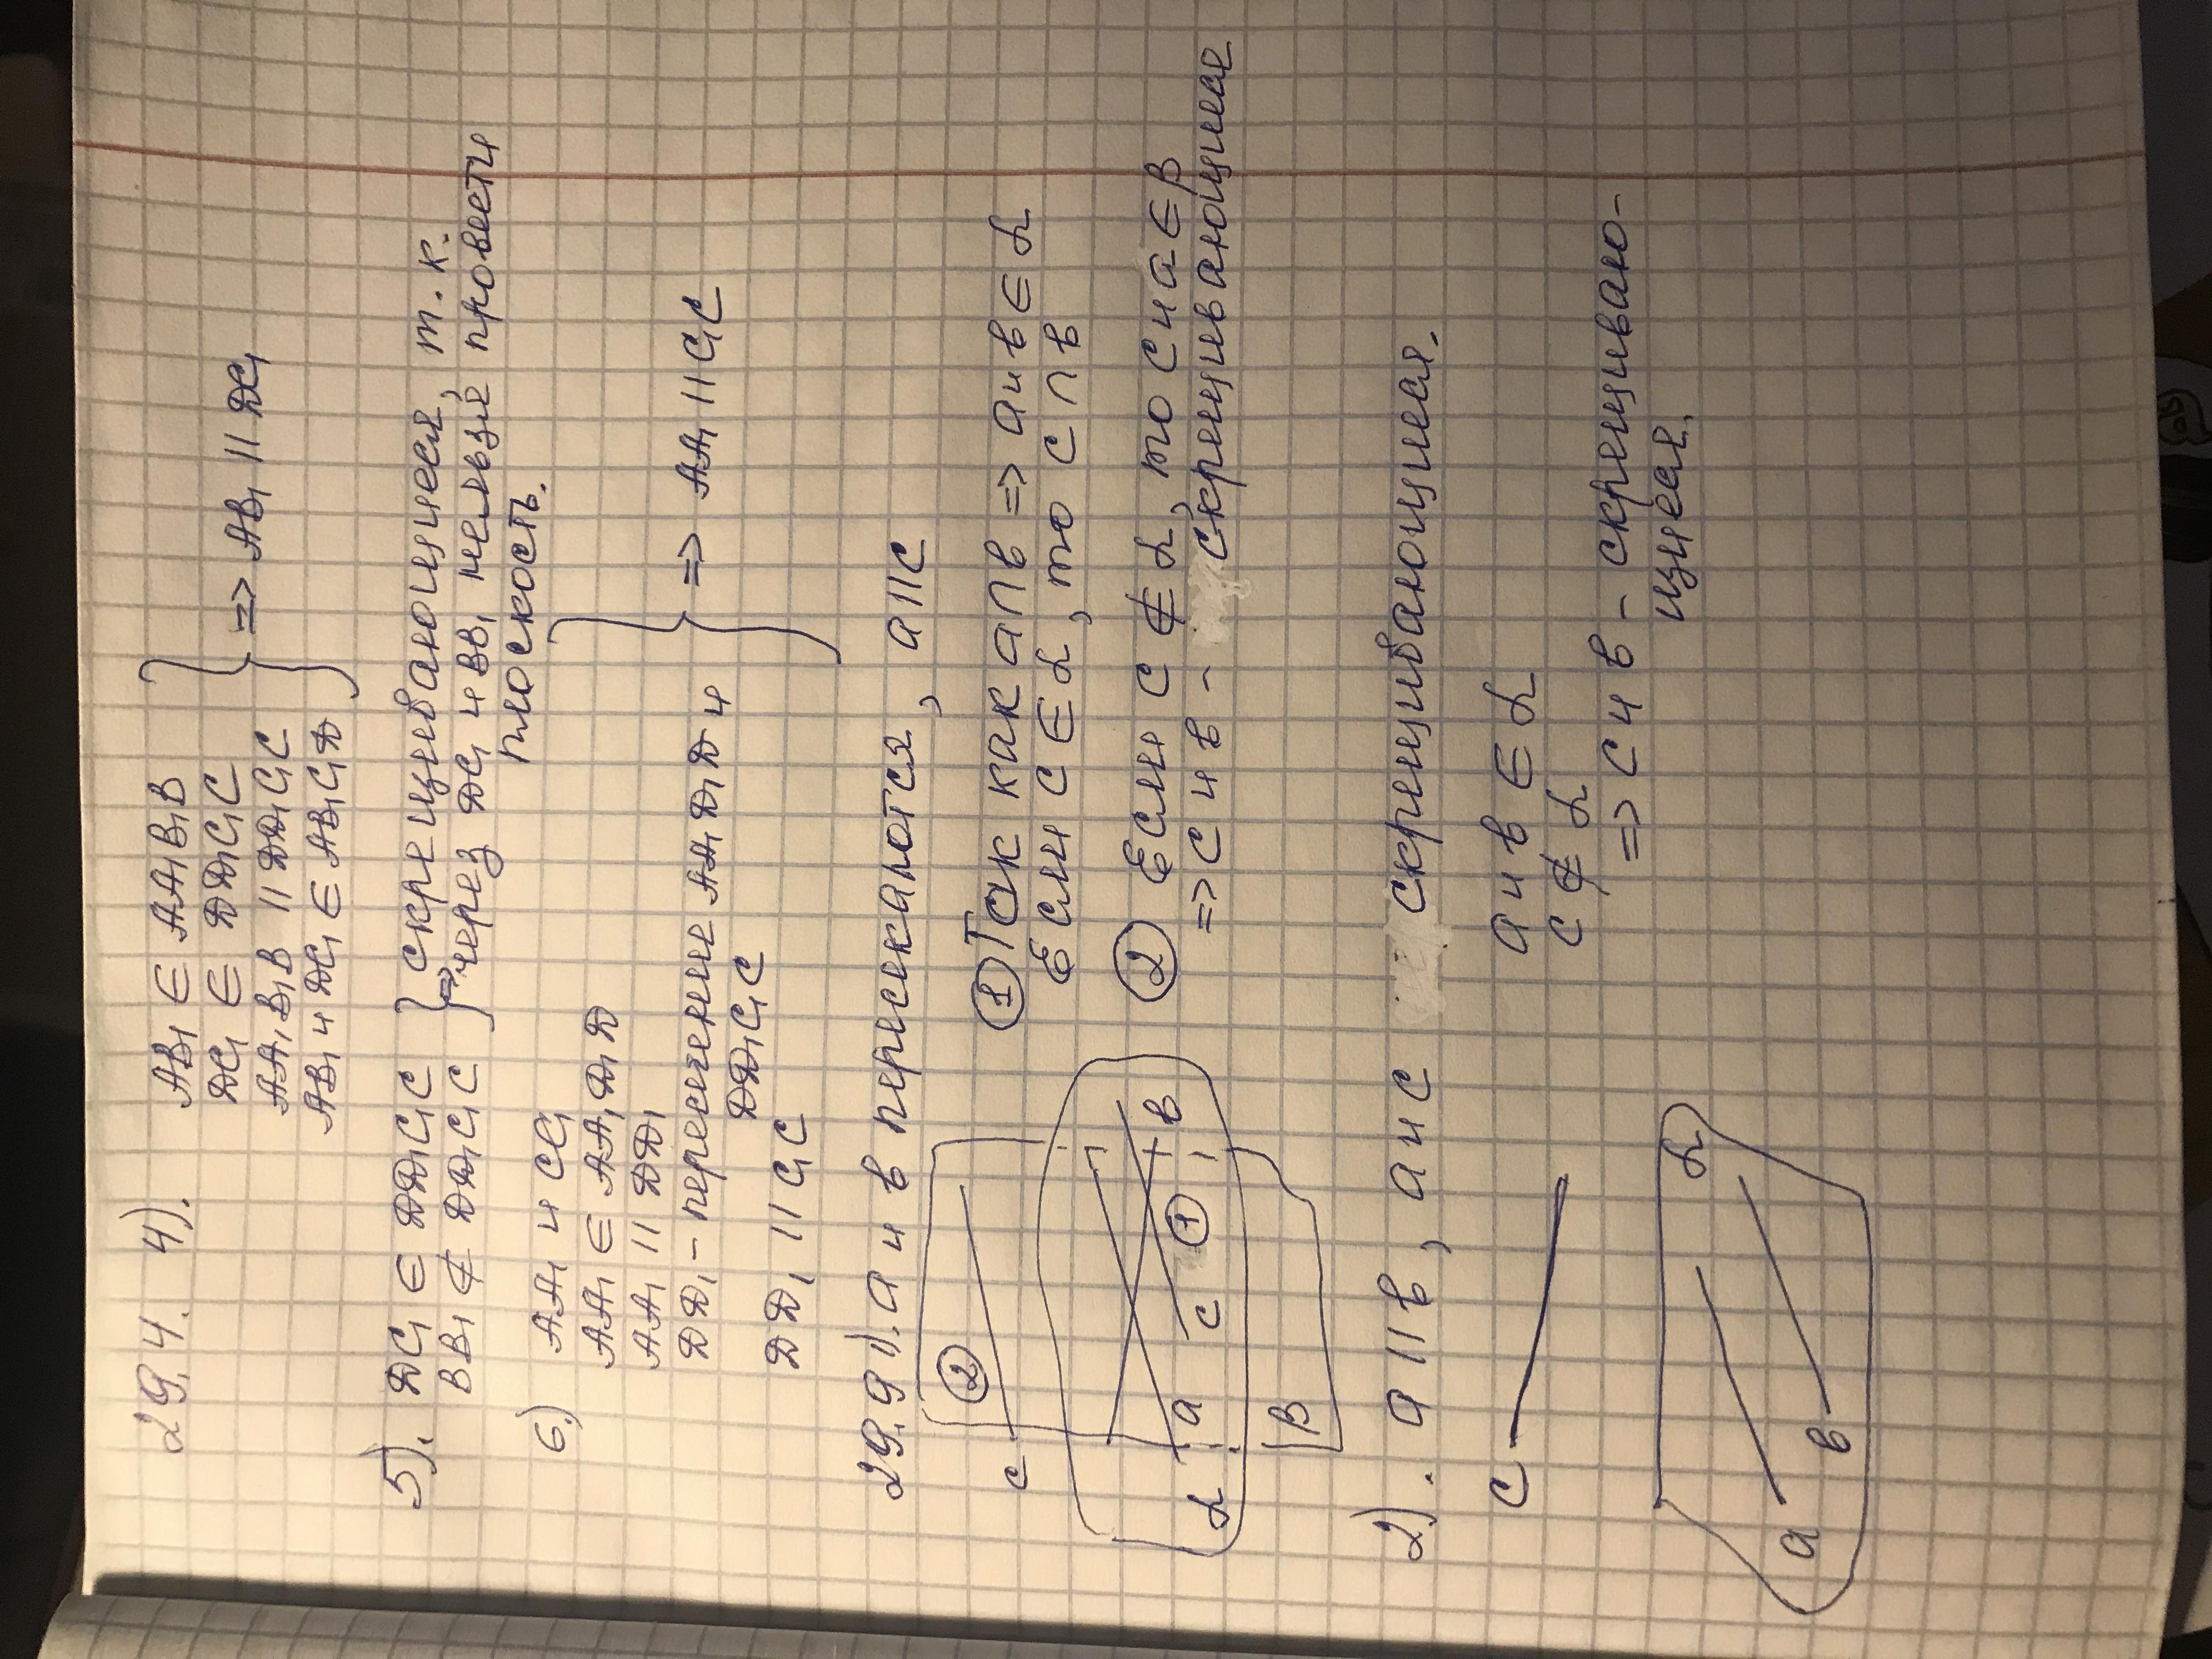 29.4. 4). AB₁ ∈ AA₁B₁B
DC₁ ∈ DD₁C₁C
AA₁B₁B || DD₁C₁C
AB₁ и DC₁ ∈ AB₁C₁D
=> AB₁ || DC₁
5). DC₁ ∈ DD₁C₁C
BB₁ ∉ DD₁C₁C
скрещивающиеся, т.к.
через DC₁ и BB₁ нельзя провести
плоскость.
6.) AA₁ и CC₁
AA₁ ∈ AA₁D₁D
AA₁ || DD₁
DD₁ - пересечение AA₁D₁D и
DD₁C₁C
DD₁ || C₁C
=> AA₁ || C₁C
29.9 1). a и b пересекаются, a||c
① Так как a∩b => a и b ∈ α
Если c ∈ α, то c ∩ b
② Если c ∉ α, то c и a ∈ β
=> c и b - скрещивающиеся
c ②
a c ① b
α
β
2). a || b, a и c скрещивающиеся.
a и b ∈ α
c ∉ α
=> c и b - скрещиваю-
щиеся.
c
α
a b